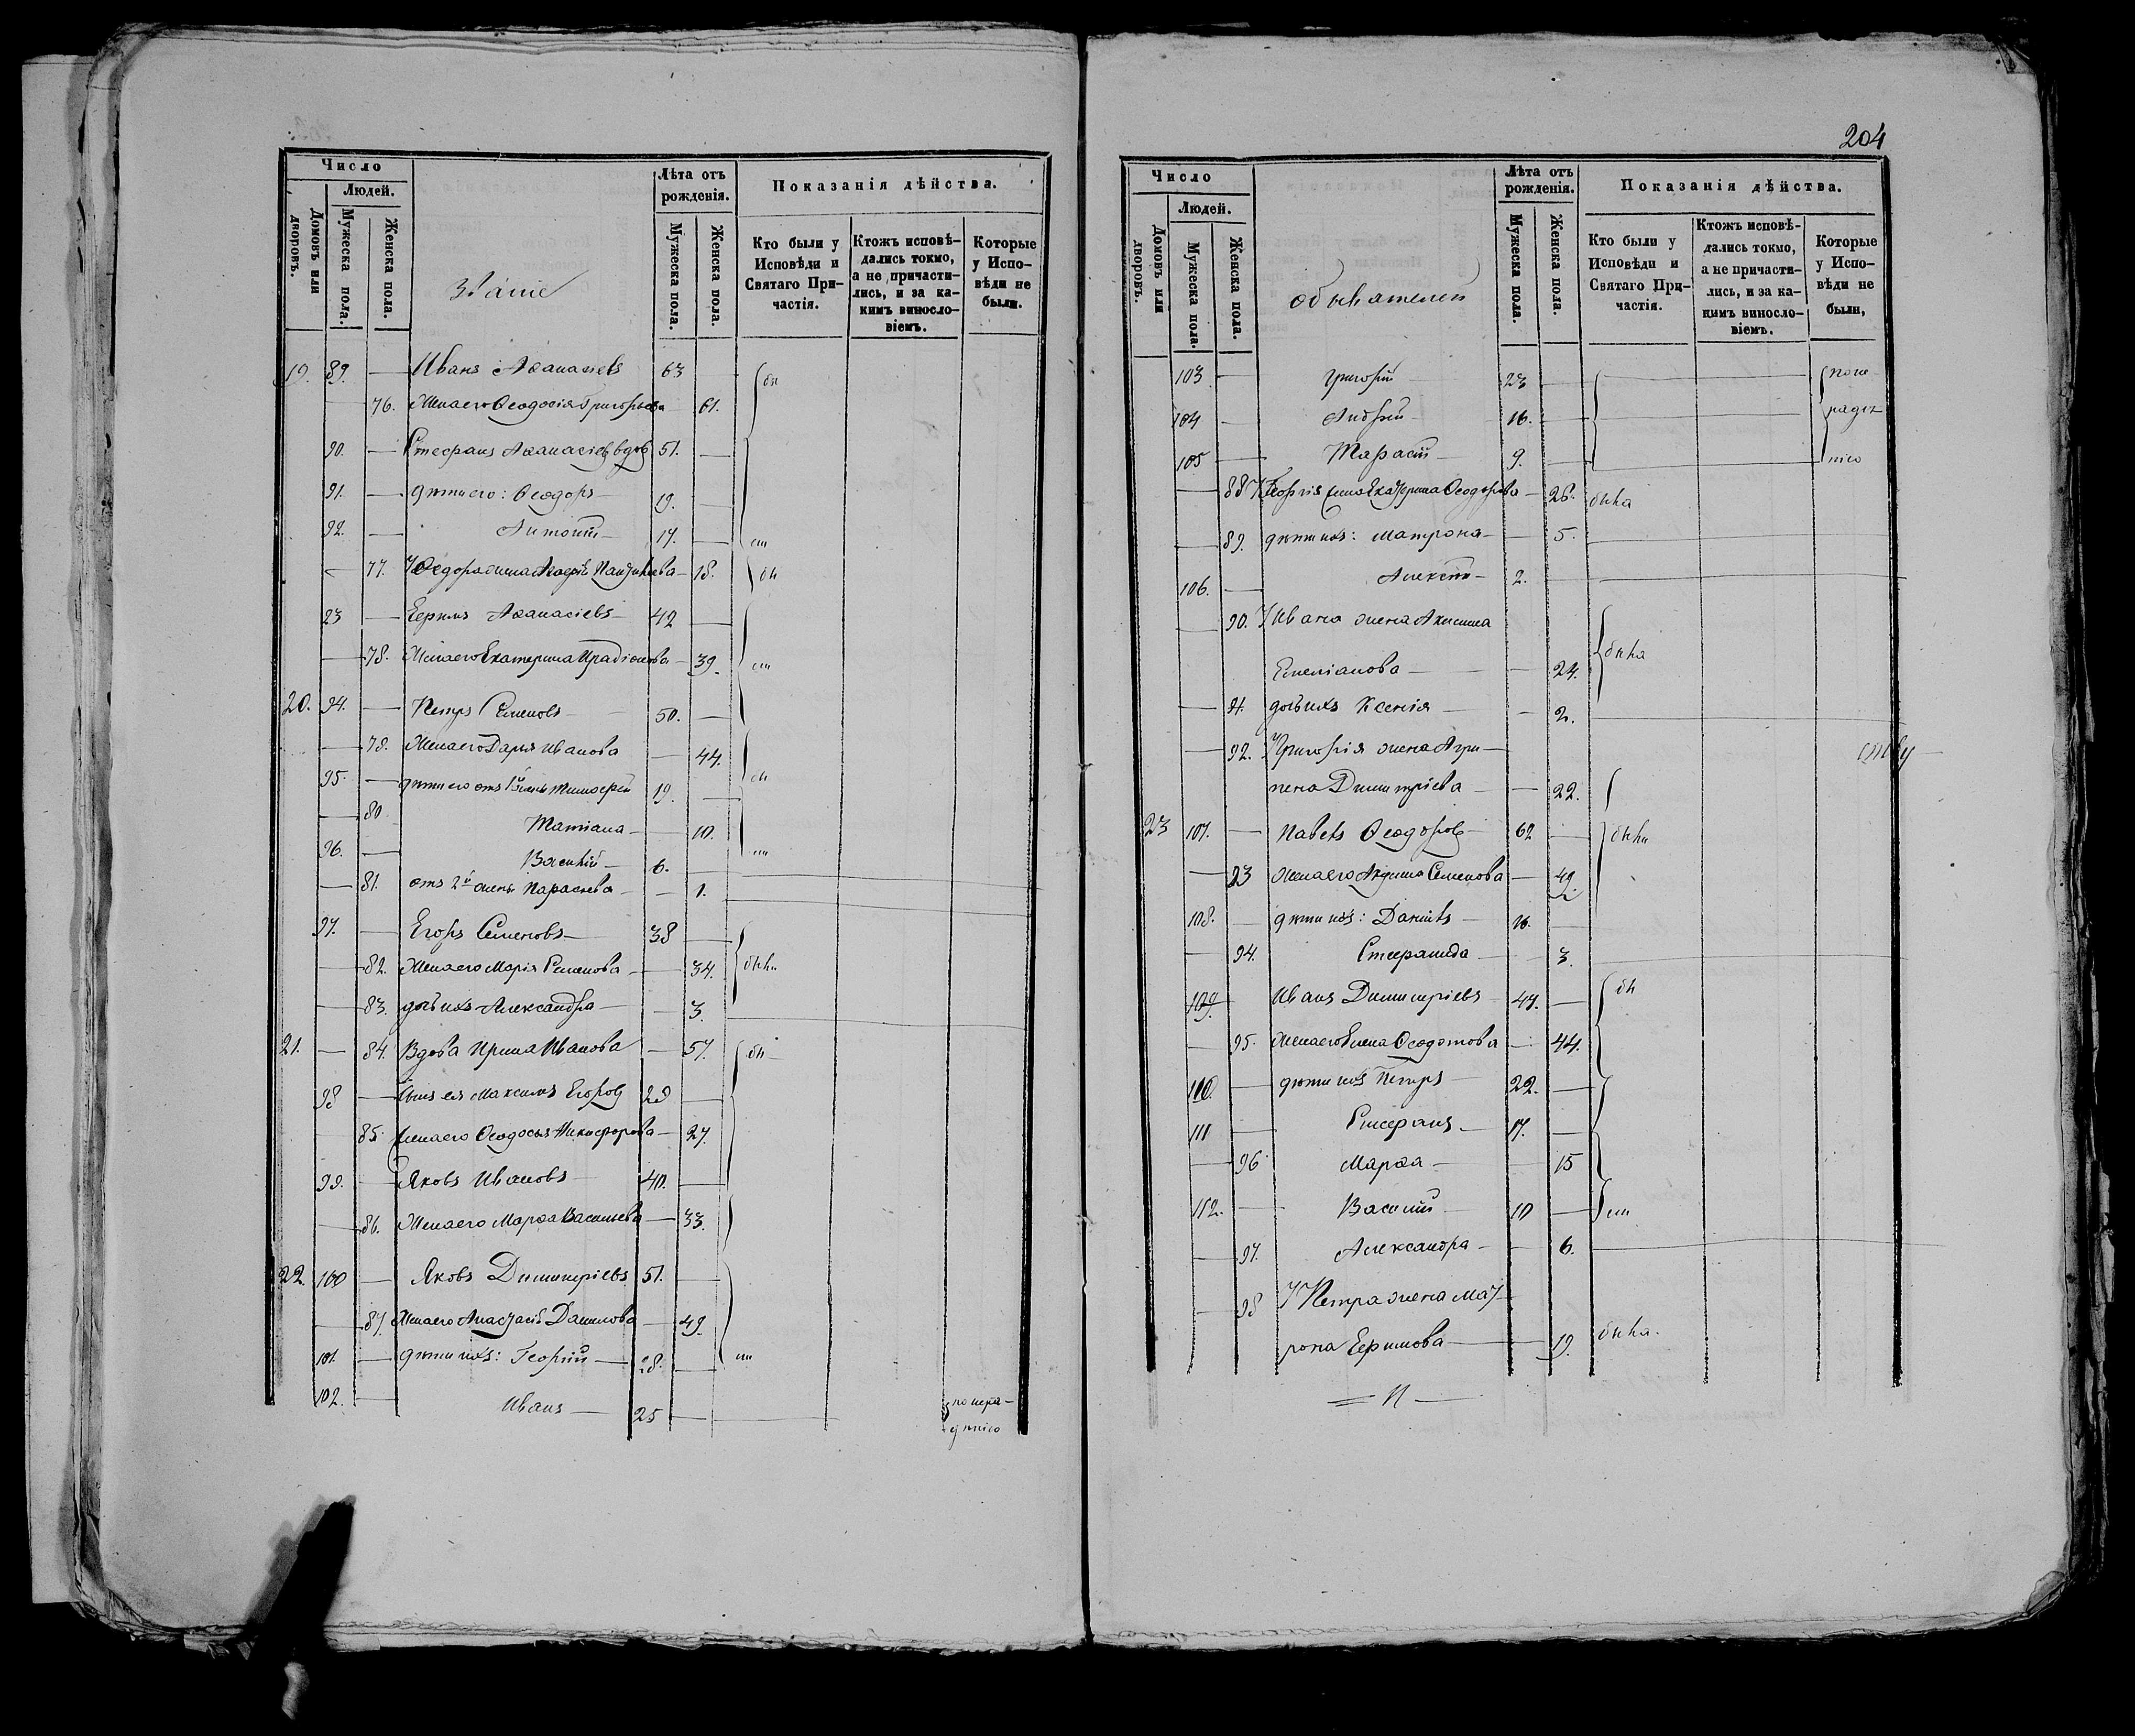 Число
Людей.
Домовъ или дворовъ.
Мужеска пола.
Женска пола.
Званіе
Лѣта отъ рожденія.
Мужеска пола.
Женска пола.
Показанія дѣйства.
Кто были у Исповѣди и Святаго Причастія.
Ктожъ исповѣдались токмо, а не причастились, и за какимъ винословіемъ.
Которые у Исповѣди не были.
19. 89. — Иванъ Аѳанасіевъ 63 —
76. Жена его Ѳеодосія Григорьева — 61.
90. — Стефанъ Аѳанасіевъ вдовъ 51. —
91. — дѣти его: Ѳеодоръ — 19. —
92. — Антоній — 17. —
77. У Ѳеодора жена — 18.
93 — Ефимъ Аѳанасіевъ — 42 —
— 78. Жена его Екатерина — 39.
20. 94. — Петръ Семеновъ — 50. —
— 79. Жена его Дарья Иванова — 44.
95. — дѣти его отъ 1й жены Тимофей 19. —
— 80 Татіана — — 10.
96. — Василій — 6. —
— 81. отъ 2й жены Параскева — — 1.
97. — Егоръ Семеновъ — 38 —
— 82. Жена его Марія Семенова — — 34.
— 83. дочь ихъ Александра — — 3.
21. — 84. Вдова Ирина Иванова — 57.
98 — Сынъ ея Максимъ Егоровъ 28 —
85. жена его Ѳеодосья Никифорова — 27.
99. — Яковъ Ивановъ — 40. —
— 86. Жена его Марѳа Васильева — 33.
22. 100 — Яковъ Димитріевъ 51. —
— 87. Жена его Анастасія Данилова — 49.
101. — дѣти ихъ: Георгій — 28. —
102. — Иванъ — 25 — по нера-
дѣнію
204
Число
Людей.
Домовъ или дворовъ.
Мужеска пола.
Женска пола.
обывателей
Лѣта отъ рожденія.
Мужеска пола.
Женска пола.
Показанія дѣйства.
Кто были у Исповѣди и Святаго Причастія.
Ктожъ исповѣдались токмо, а не причастились, и за какимъ винословіемъ.
Которые у Исповѣди не были,
103 — Григорій — 23 — по не
104 — Андрей — 16. — радѣ
105 — Тарасій — 9. — нію
— 88 У Георгія жена Екатерина Ѳеодорова — 26.
— 89. дѣти ихъ: Матрона — — 5.
106. — Алексѣй — 2.
— 90. У Ивана жена Акилина
Емеліанова — — 24.
— 91. дочь ихъ Ксенія — — 2.
— 92. У Григорія жена Агри-
пена Димитріева — — 22.
23 107. — Павелъ Ѳеодоровъ — 62 —
— 93 Жена его Семенова — 49.
108. — дѣти ихъ: Даніилъ — 16. —
— 94. Стефанида — 3.
109. Иванъ Димитріевъ 47. —
— 95. Жена его Елена Ѳеодотова — 44.
110. — дѣти ихъ Петръ — 22. —
111 — Стефанъ — 17. —
— 96 Марѳа — — 15
112. — Василій — 10 —
— 97. Александра — — 6.
— 98 У Петра жена Мат-
рона Ефимова — — 19.
= И —